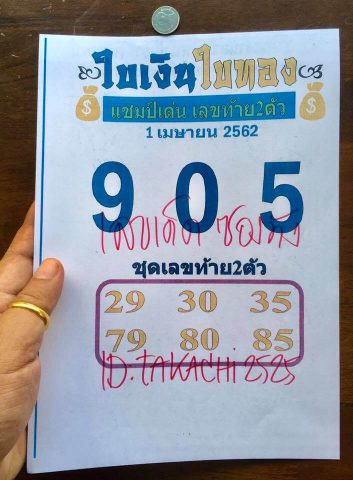 ใบเงินใบทอง
แชมป์เด่น เลขท้าย2ตัว
1 เมษายน 2562
9 0 5
เลขเด็ด ซองดัง
ชุดเลขท้าย2ตัว
29 30 35
79 80 85
ID. TAKACHI 2525